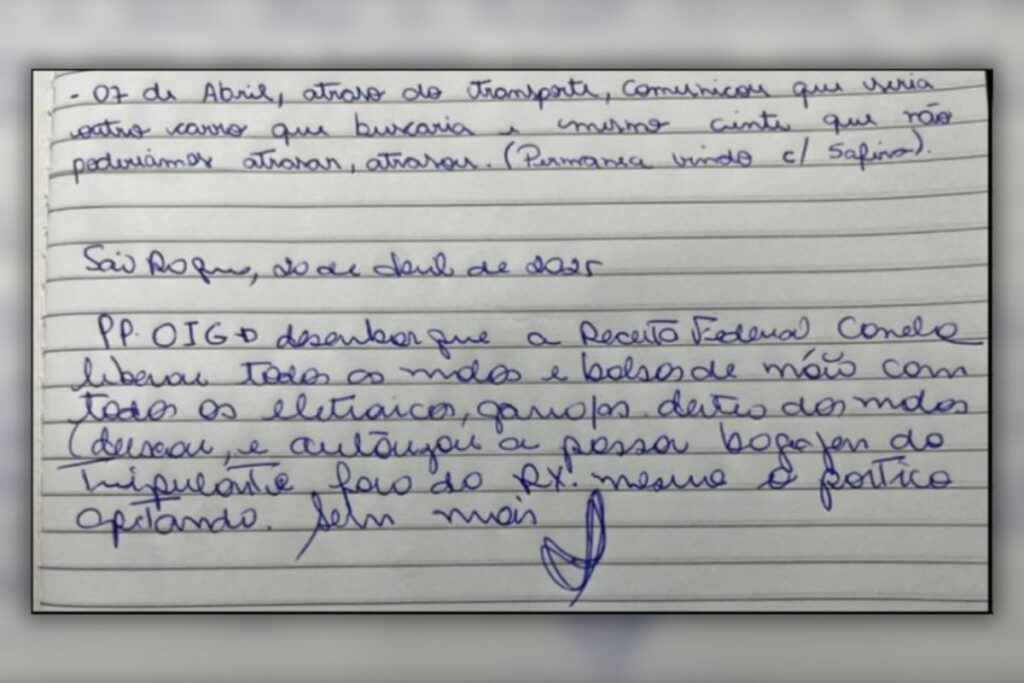 - 07 de Abril, atraso do transporte, comunicou que viria
outro carro que buscaria e mesmo ciente que não
poderíamos atrasar, atrasou. (Permanca vindo c/ Safira).
São Roque, 20 de abril de 2025
PP. OIG desembarque a Receita Federal
liberou todos as malas e bolsas de mão com
todos os garrafas dentro das malas
e autorizou a passar bagajen do
fora do RX. mesmo o portico
apitando. Sem mais